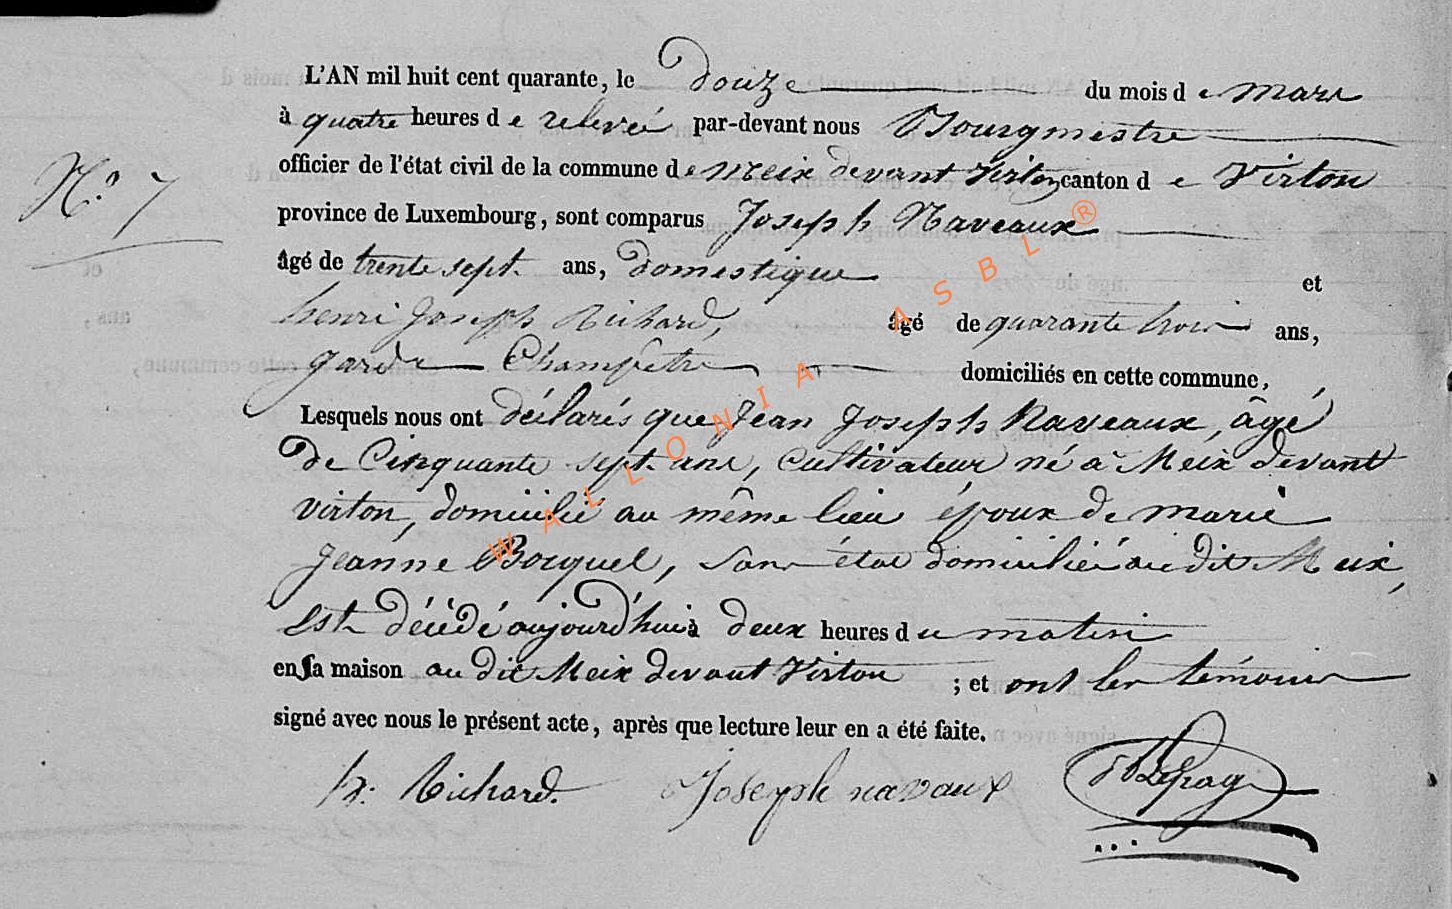 L'AN mil huit cent quarante, le Douze du mois de mars
à quatre heures de relevée par-devant nous Bourgmestre
officier de l'état civil de la commune de Meix devant Virton canton de Virton
N.° 7
province de Luxembourg, sont comparus Joseph Naveaux
âgé de trente sept ans, Domestique et
henri Joseph Richard, âgé de quarante trois ans,
garde Champêtre domiciliés en cette commune,
Lesquels nous ont déclarés que Jean Joseph Naveaux, âgé
De Cinquante sept ans, Cultivateur né à Meix devant
virton, domicilié au même lieu époux de marie
Jeanne Bocquel, sans état domiciliée au dit Meix,
est décédé aujourd'hui à deux heures du matin
en sa maison au dit Meix devant Virton ; et ont les témoins
signé avec nous le présent acte, après que lecture leur en a été faite.
h. Richard. Joseph navaux
WALLONIA ASBL ®